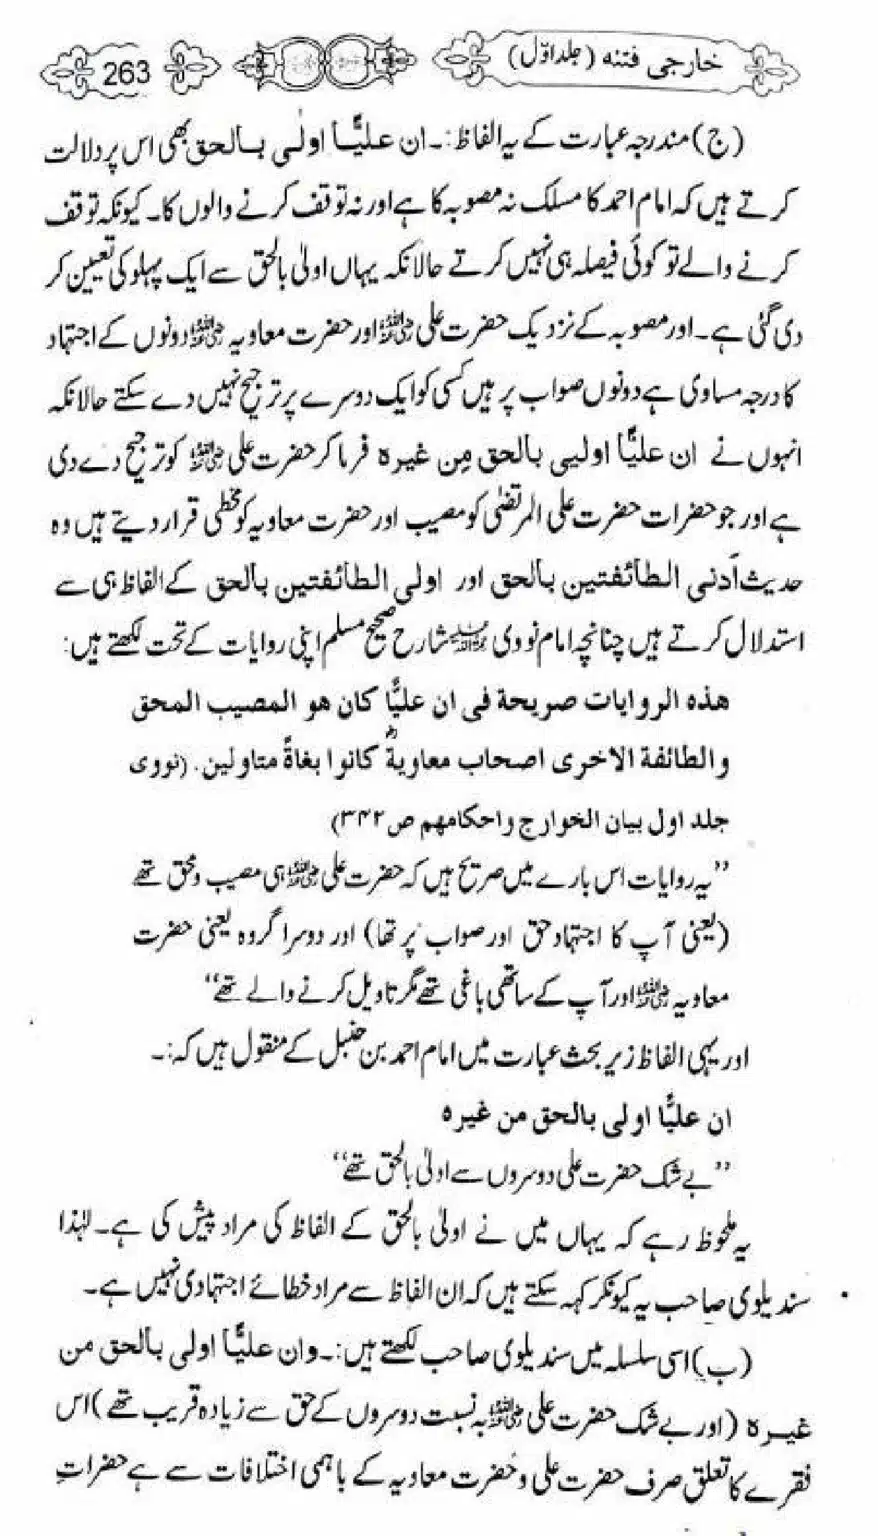 خارجی فتنہ (جلد اوّل)
263
(ج) مندرجہ عبارت کے یہ الفاظ :۔ ان علیًّا اولٰی بالحق بھی اس پر دلالت
کرتے ہیں کہ امام احمد کا مسلک نہ مصوبہ کا ہے اور نہ توقف کرنے والوں کا۔ کیونکہ توقف
کرنے والے تو کوئی فیصلہ ہی نہیں کرتے حالانکہ یہاں اولیٰ بالحق سے ایک پہلو کی تعیین کر
دی گئی ہے۔ اور مصوبہ کے نزدیک حضرت علی رضی اللہ عنہ اور حضرت معاویہ رضی اللہ عنہ دونوں کے اجتہاد
کا درجہ مساوی ہے دونوں صواب پر ہیں کسی کو ایک دوسرے پر ترجیح نہیں دے سکتے حالانکہ
انہوں نے ان علیًّا اولیی بالحق مِن غیرہ فرما کر حضرت علی رضی اللہ عنہ کو ترجیح دے دی
ہے اور جو حضرات حضرت علی المرتضیٰ کو مصیب اور حضرت معاویہ کو مخطی قرار دیتے ہیں وہ
حدیث اَدنی الطائفتین بالحق اور اولی الطائفتین بالحق کے الفاظ ہی سے
استدلال کرتے ہیں چنانچہ امام نووی رحمہ اللہ شارح صحیح مسلم اپنی روایات کے تحت لکھتے ہیں:
ھذہ الروایات صریحة فی ان علیًّا کان ھو المصیب المحق
والطائفة الاخری اصحاب معاویةؓ کانوا بغاةً متاولین. (نووی
جلد اول بیان الخوارج واحکامھم ص ۳۴۲)
”یہ روایات اس بارے میں صریح ہیں کہ حضرت علی رضی اللہ عنہ ہی مصیب ومحق تھے
(یعنی آپ کا اجتہاد حق اور صواب پر تھا) اور دوسرا گروہ یعنی حضرت
معاویہ رضی اللہ عنہ اور آپ کے ساتھی باغی تھے مگر تاویل کرنے والے تھے“
اور یہی الفاظ زیر بحث عبارت میں امام احمد بن حنبل کے منقول ہیں کہ:۔
ان علیًّا اولی بالحق من غیرہ
”بے شک حضرت علی دوسروں سے اولیٰ بالحق تھے“
یہ ملحوظ رہے کہ یہاں میں نے اولیٰ بالحق کے الفاظ کی مراد پیش کی ہے۔ لہٰذا
سندیلوی صاحب یہ کیونکر کہہ سکتے ہیں کہ ان الفاظ سے مراد خطائے اجتہادی نہیں ہے۔
(ب) اسی سلسلہ میں سندیلوی صاحب لکھتے ہیں:۔ وان علیًّا اولی بالحق من
غیرہ (اور بے شک حضرت علی رضی اللہ عنہ بہ نسبت دوسروں کے حق سے زیادہ قریب تھے) اس
فقرے کا تعلق صرف حضرت علی و حضرت معاویہ کے باہمی اختلافات سے ہے حضراتِ